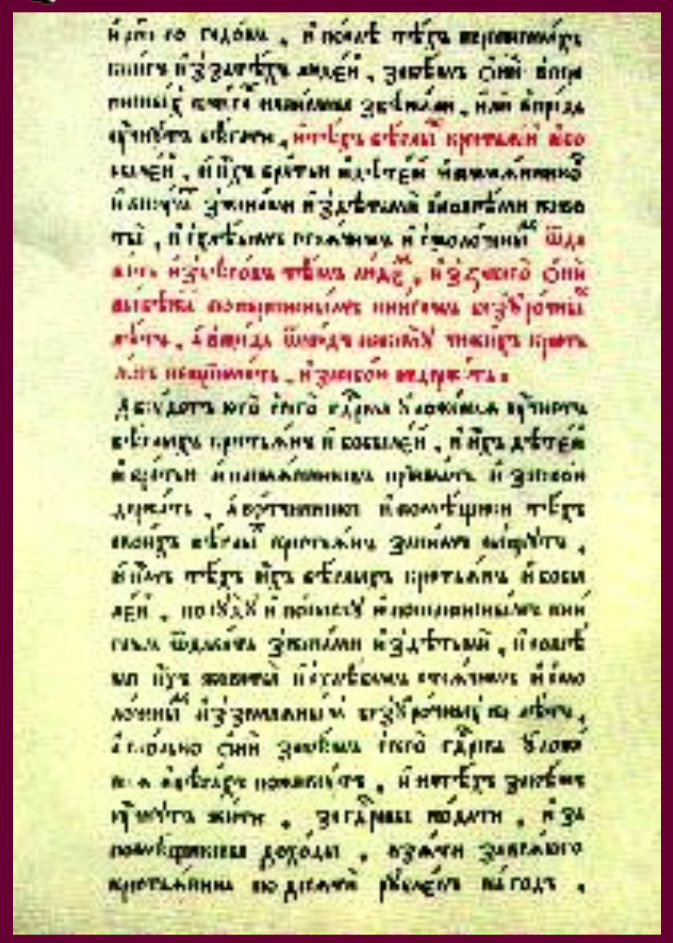 тѣхъ
книгъ Они
книгъ
бѣгати, и тѣхъ бѣглыхъ крестьянъ и бо
былей, и ихъ братью и дѣтей и племянниковъ
з женами и з дѣтьми и со всѣми живо
ты, и с хлѣбомъ стоячимъ и с молоченымъ ѿда
вать из бѣговъ тѣмъ людемъ, из за кого Они
выбѣжатъ книгамъ без урочныхъ
лѣтъ, а впредь никому чюжихъ кресть
янъ не приимать, и за собою не держать.
А будетъ кто с сего гдрва уложенья учнетъ
бѣглыхъ крестьянъ и бобылей, и ихъ дѣтей
и братью и племянниковъ приимать и за собою
держать, а вотчинники и помѣщики тѣхъ
своихъ бѣглыхъ крестьянъ за нимъ сыщутъ,
и имъ тѣхъ ихъ бѣглыхъ крестьянъ и бобы
лей, по суду и по сыску и по кни
гамъ ѿдавать з женами и з дѣтьми, и со всѣ
ми ихъ животы и с хлѣбомъ стоячимъ и с мо
лоченымъ и з земянымъ без урочныхъ же лѣтъ,
а сколько Они за кѣмъ с сего гдрва уложе
нья в бѣгахъ поживутъ, и на тѣхъ за кѣмъ
учнутъ жити, за гдрвы подати, и за
помѣщиковы доходы, взяти за всякого
крестьянина по десяти рублевъ на годъ,